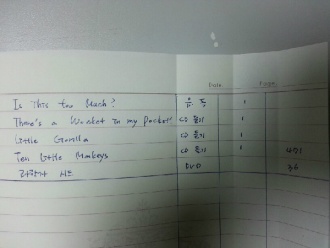 Date Page
Is This too Much? 1
There's a Wocket in my Pocket CD 듣기 1
Little Gorilla CD 듣기 1
Ten Little Monkeys CD 듣기
DVD